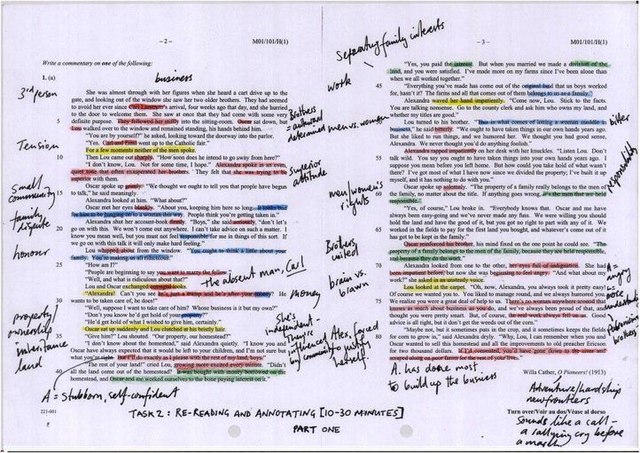 – 2 –
M01/101/H(1)
Write a commentary on one of the following:
business
1. (a)
3rd person
She was almost through with her figures when she heard a cart drive up to the
gate, and looking out of the window she saw her two older brothers. They had seemed
to avoid her ever since Carl Linstrum's arrival, four weeks ago that day, and she hurried
to the door to welcome them. She saw at once that they had come with some very
definite purpose. They followed her stiffly into the sitting-room. Oscar sat down, but
Lou walked over to the window and remained standing, his hands behind him.
"You are by yourself?" he asked, looking toward the doorway into the parlor.
"Yes. Carl and Emil went up to the Catholic fair."
Tension
For a few moments neither of the men spoke.
Then Lou came out sharply. "How soon does he intend to go away from here?"
"I don't know, Lou. Not for some time, I hope." Alexandra spoke in an even,
quiet tone that often exasperated her brothers. They felt that she was trying to be
superior with them.
Superior
attitude
Oscar spoke up grimly. "We thought we ought to tell you that people have begun
to talk," he said meaningly.
small
community
Alexandra looked at him. "What about?"
Oscar met her eyes blankly. "About you, keeping him here so long. It looks bad
for him to be hanging on to a woman this way. People think you're getting taken in."
family
dispute
Alexandra shut her account-book firmly. "Boys," she said seriously, "don't let's
go on with this. We won't come out anywhere. I can't take advice on such a matter. I
know you mean well, but you must not feel responsible for me in things of this sort. If
we go on with this talk it will only make hard feeling."
honour
Lou whipped about from the window. "You ought to think a little about your
family. You're making us all ridiculous."
"How am I?"
"People are beginning to say you want to marry the fellow."
"Well, and what is ridiculous about that?"
the absent man, Carl
Lou and Oscar exchanged outraged looks.
"Alexandra! Can't you see he's just a tramp and he's after your money? He
wants to be taken care of, he does!"
money
"Well, suppose I want to take care of him? Whose business is it but my own?"
"Don't you know he'd get hold of your property?"
"He'd get hold of what I wished to give him, certainly."
property
ownership
inheritance
land
Oscar sat up suddenly and Lou clutched at his bristly hair.
"Give him?" Lou shouted. "Our property, our homestead?"
"I don't know about the homestead," said Alexandra quietly. "I know you and
Oscar have always expected that it would be left to your children, and I'm not sure but
what you're right. But I'll do exactly as I please with the rest of my land, boys."
"The rest of your land!" cried Lou, growing more excited every minute. "Didn't
all the land come out of the homestead? It was bought with money borrowed on the
homestead, and Oscar and me worked ourselves to the bone paying interest on it."
A = stubborn, self-confident
221-001
TASK 2: RE-READING AND ANNOTATING [10-30 MINUTES]
PART ONE
separating family interests
work
Brothers
men vs. women
men/women's
rights
Brothers
united
brain vs.
brawn
She's
independent
– 3 –
M01/101/H(1)
"Yes, you paid the interest. But when you married we made a division of the
land, and you were satisfied. I've made more on my farms since I've been alone than
when we all worked together."
45
"Everything you've made has come out of the original land that us boys worked
for, hasn't it? The farms and all that comes out of them belongs to us as a family."
Alexandra waved her hand impatiently. "Come now, Lou. Stick to the facts.
You are talking nonsense. Go to the county clerk and ask him who owns my land, and
whether my titles are good."
50
Lou turned to his brother. "This is what comes of letting a woman meddle in
business," he said bitterly. "We ought to have taken things in our own hands years ago.
But she liked to run things, and we humored her. We thought you had good sense,
Alexandra. We never thought you'd do anything foolish."
bitter
55
Alexandra rapped impatiently on her desk with her knuckles. "Listen, Lou. Don't
talk wild. You say you ought to have taken things into your own hands years ago. I
suppose you mean before you left home. But how could you take hold of what wasn't
there? I've got most of what I have now since we divided the property; I've built it up
myself, and it has nothing to do with you."
responsibility
60
Oscar spoke up solemnly. "The property of a family really belongs to the men of
the family, no matter about the title. If anything goes wrong, it's the men that are held
responsible."
"Yes, of course," Lou broke in. "Everybody knows that. Oscar and me have
always been easy-going and we've never made any fuss. We were willing you should
65
hold the land and have the good of it, but you got no right to part with any of it. We
worked in the fields to pay for the first land you bought, and whatever's come out of it
has got to be kept in the family."
Oscar reinforced his brother, his mind fixed on the one point he could see. "The
property of a family belongs to the men of the family, because they are held responsible,
70
and because they do the work."
Alexandra looked from one to the other, her eyes full of indignation. She had
been impatient before, but now she was beginning to feel angry. "And what about my
work?" she asked in an unsteady voice.
Lou looked at the carpet. "Oh, now, Alexandra, you always took it pretty easy!
75
Of course we wanted you to. You liked to manage round, and we always humored you.
We realize you were a great deal of help to us. There's no woman anywhere around that
knows as much about business as you do, and we've always been proud of that, and
thought you were pretty smart. But, of course, the real work always fell on us. Good
advice is all right, but it don't get the weeds out of the corn."
80
"Maybe not, but it sometimes puts in the crop, and it sometimes keeps the fields
for corn to grow in," said Alexandra dryly. "Why, Lou, I can remember when you and
Oscar wanted to sell this homestead and all the improvements to old preacher Ericson
for two thousand dollars. If I'd consented, you'd have gone down to the river and
scraped along on poor farms for the rest of your lives."
A. has done most
to build up the business
Willa Cather, O Pioneers! (1913)
Adventure/hardship
new frontiers
Turn over/Voir au dos/Véase al dorso
Sounds like a call –
a rallying cry before
a march